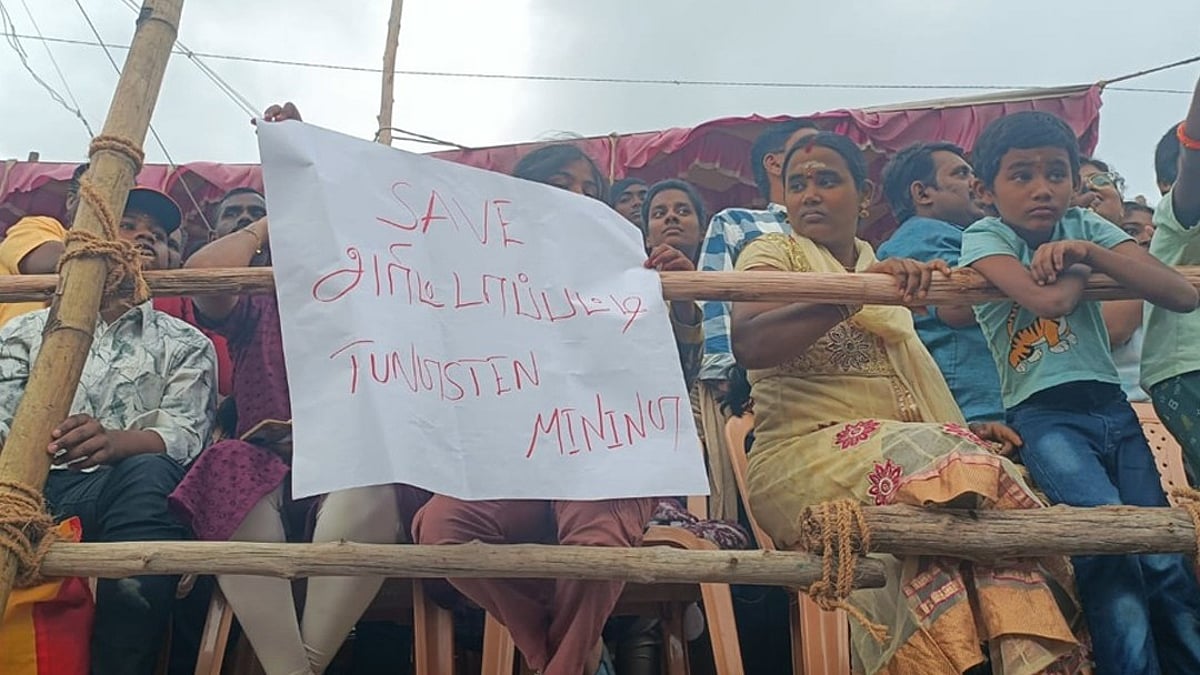 SAVE
அரிட்டாப்பட்டி
TUNGSTEN
MINING